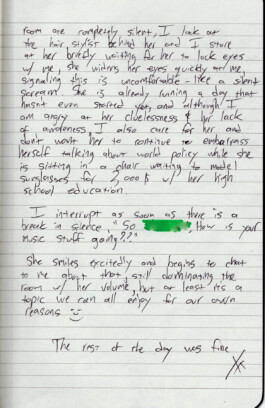 room are completely silent, I look at
the hair stylist behind her and I stare
at her briefly waiting for her to lock eyes
w/ me, she widens her eyes quickly at me
signaling this is uncomfortable - like a silent
scream. She is already ruining a day that
hasn't even started yet, and although I
am angry at her cluelessness & her lack
of awareness, I also care for her, and
don't want her to continue to embarrass
herself talking about world policy while she
is sitting in a chair waiting to model
sunglasses for 2,000$ w/ her high
school education.
I interrupt as soon as there is a
break in silence, "So , How is your
music stuff going??"
She smiles excitedly and begins to chat
to me about that, still dominating the
room w/ her volume, but at least its a
topic we can all enjoy for our own
reasons
The rest of the day was fine